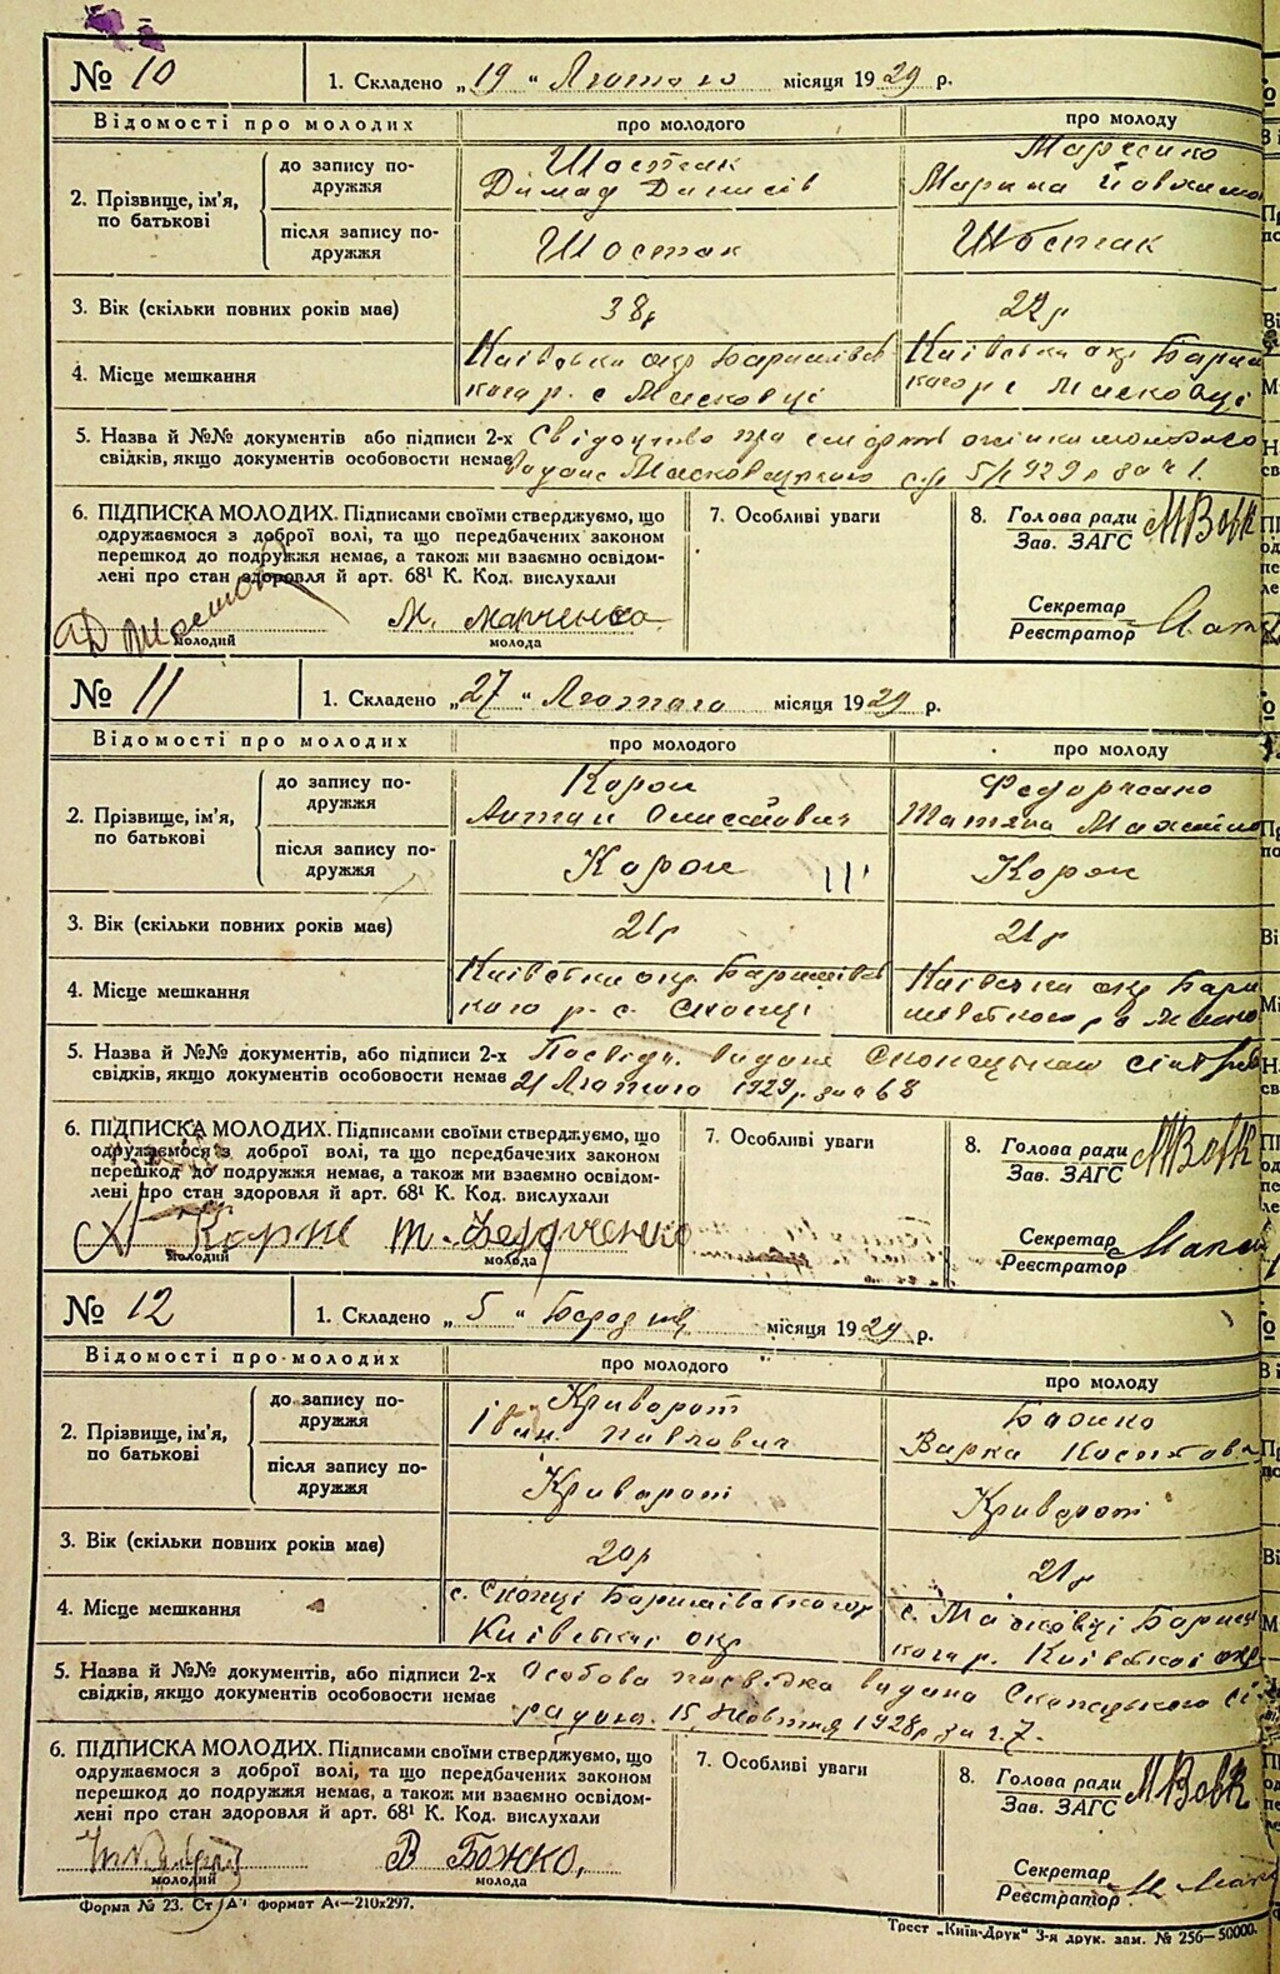 № 10 1. Складено „19“ Лютого місяця 1929 р.
Відомості про молодих про молодого про молоду
2. Прізвище, ім'я, по батькові
до запису подружжя
Шостак
Денисів
Марченко
Марина
після запису подружжя
Шостак
Шостак
3. Вік (скільки повних років має) 38р 22р
4. Місце мешкання
Київська окр Баришівсь
кого р. с Масковці
Київська окр Бариш
кого р с Масковці
5. Назва й №№ документів або підписи 2-х Свідоцтво про смерть
свідків, якщо документів особовости немає 5/I 929р за ч 1.
6. ПІДПИСКА МОЛОДИХ. Підписами своїми стверджуємо, що
одружаємося з доброї волі, та що передбачених законом
перешкод до подружжя немає, а також ми взаємно освідом-
лені про стан здоровля й арт. 68¹ К. Код. вислухали
Шостак М. Марченко
молодий молода
7. Особливі уваги
8. Голова ради МВовк
Зав. ЗАГС
Секретар
Реєстратор
№ 11 1. Складено „27“ Лютого місяця 1929 р.
Відомості про молодих про молодого про молоду
2. Прізвище, ім'я, по батькові
до запису подружжя
Корж
Антон
Федорченко
Татяна
після запису подружжя
Корж
Корж
3. Вік (скільки повних років має) 21р 21р
4. Місце мешкання
Київська окр. Баришівсь
кого р. с. Скопці
Київська окр Бари
шівського р с
5. Назва й №№ документів, або підписи 2-х Посвідч. видане Скопецькою
свідків, якщо документів особовости немає 21 Лютого 1929р. за № 68
6. ПІДПИСКА МОЛОДИХ. Підписами своїми стверджуємо, що
одружаємося з доброї волі, та що передбачених законом
перешкод до подружжя немає, а також ми взаємно освідом-
лені про стан здоровля й арт. 68¹ К. Код. вислухали
А Корж Т. Федорченко
молодий молода
7. Особливі уваги
8. Голова ради МВовк
Зав. ЗАГС
Секретар
Реєстратор
№ 12 1. Складено „5“ місяця 1929 р.
Відомості про молодих про молодого про молоду
2. Прізвище, ім'я, по батькові
до запису подружжя
Криворот
Іван. Павлович
Божко
Варка
після запису подружжя
Криворот
Криворот
3. Вік (скільки повних років має) 20р 21р
4. Місце мешкання
с. Скопці Баришівського р
Київської окр
с. Масковці Бариш
кого р. Київської окр
5. Назва й №№ документів, або підписи 2-х Особова посвідка видана Скопецькою сі
свідків, якщо документів особовости немає радою. 15 Жовтня 1928р за ч. 7.
6. ПІДПИСКА МОЛОДИХ. Підписами своїми стверджуємо, що
одружаємося з доброї волі, та що передбачених законом
перешкод до подружжя немає, а також ми взаємно освідом-
лені про стан здоровля й арт. 68¹ К. Код. вислухали
В Божко,
молодий молода
7. Особливі уваги
8. Голова ради МВовк
Зав. ЗАГС
Секретар
Реєстратор
Форма № 23. Ст формат А₄—210х297.
Трест „Київ-Друк“ 3-я друк. зам. № 256—50000.